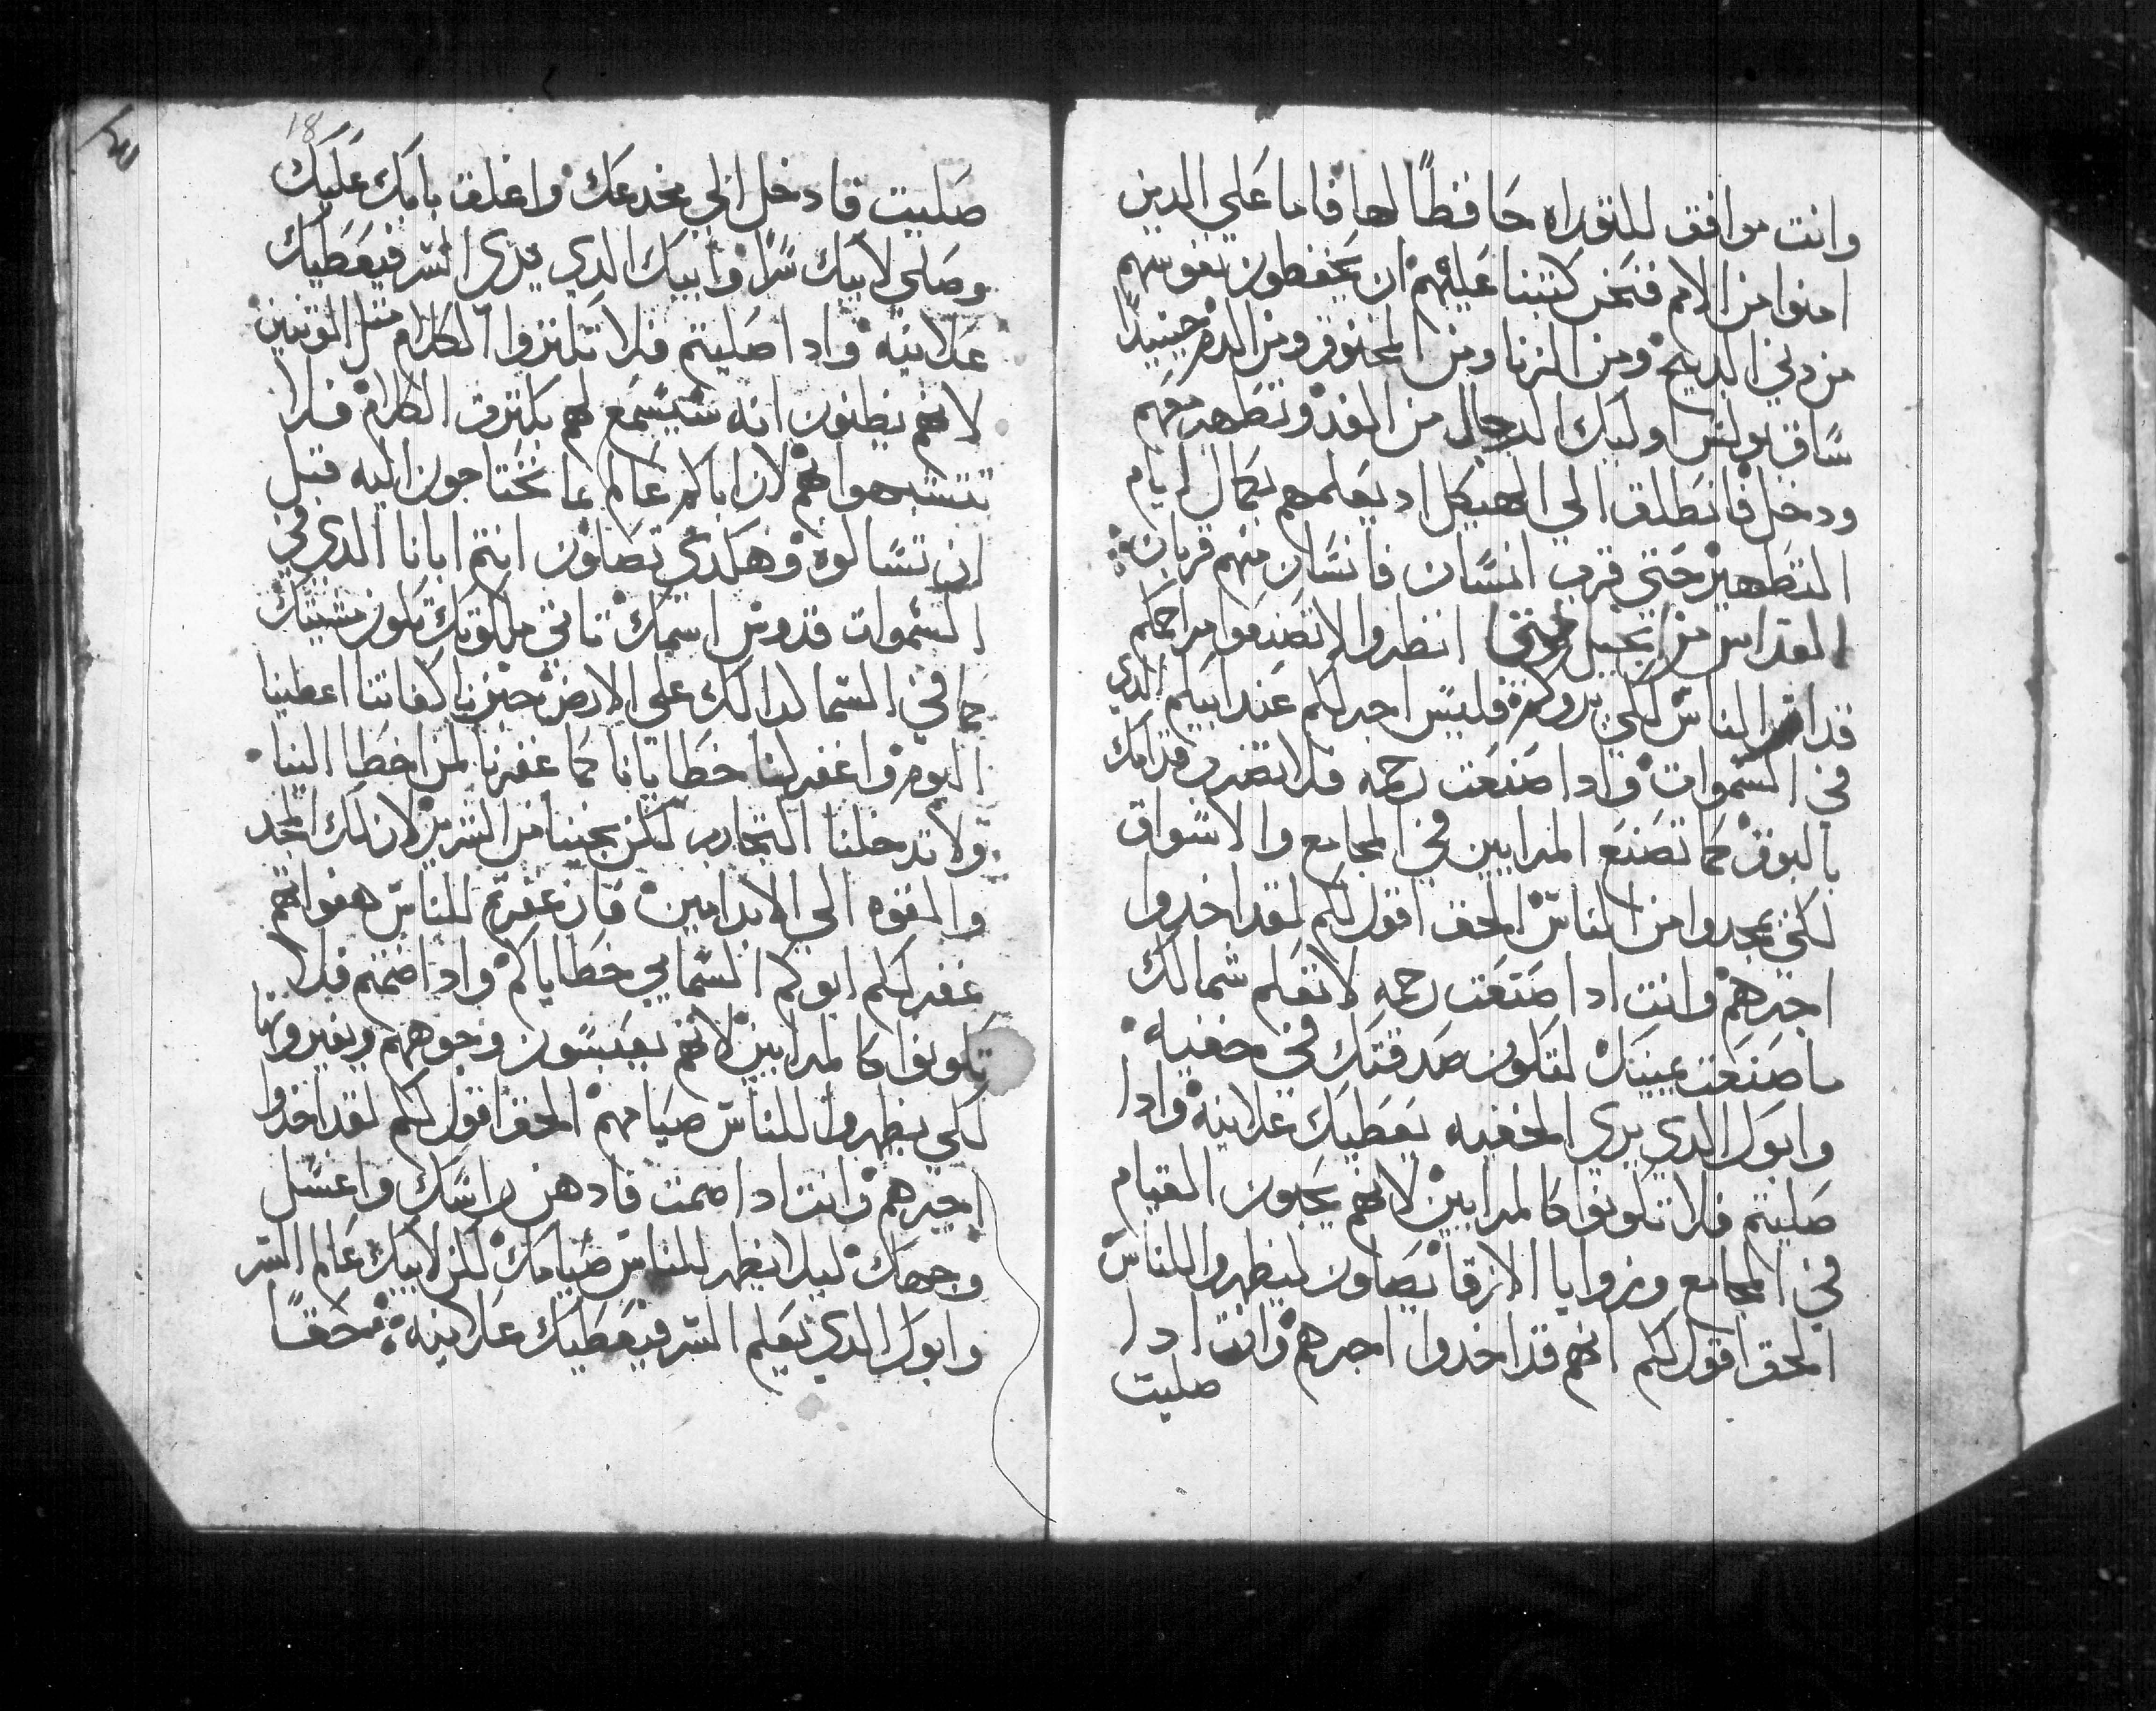 وانت موافق للتوراه حافظاً لها فاما علي الدين
امنوا من الامم فنحن كتبنا عليهم ان يحفظون نفوسهم
من دبح ومن الزنا ومن المخنوق ومن الدم حينيدا
ساق بولس اوليك الرجال من الغد وتطهر معهم
ودخل فانطلق الي الهيكل اد يعلمهم بكمال ايام
التطهير حتي قرب انسان فانسان منهم قربان
القداس من انجيل متي انظروا لا تصنعوا مراحمكم
قدام الناس لكي يروكم فليس اجر لكم عند ابيكم الدي
في السموات وادا صنعت رحمه فلا تضرب قدامك
بالبوق كما تصنع المرايين في المجامع والاسواق
لكي يمجدوا من الناس الحق اقول لكم لقد اخدوا
اجرهم وانت ادا صنعت رحمه لا تعلم شمالك
ما صنعت يمينك لتكون صدقتك في مخفيه
وابوك الدي يري المخفيه يعطيك علانيه وادا
صليتم فلا تكونوا كالمرايين لانهم يحبون القيام
في المجامع وزوايا الازقا يصلون ليظهروا للناس
الحق اقول لكم انهم قد اخدوا اجرهم وانت ادا
صليت
18
صليت فادخل الي مخدعك واغلق بابك عليك
وصلي لابيك سراً وابيك الدي يري السر فيعطيك
علانيه وادا صليتم فلا تكتروا الكلام متل الوتنيين
لانهم يظنون انه سيسمع لهم بكترت الكلام فلا
تتشبهوا بهم لان اباكم عالم بما تحتاجون اليه قبل
ان تسالوه وهكدي تصلون انتم ابانا الدي في
السموات قدوس اسمك تاتي ملكوتك تكون مشيتك
كما في السما كدالك علي الارض خبزنا كفاتنا اعطينا
اليوم واغفر لنا خطايانا كما غفرنا لمن اخطا الينا
ولا تدخلنا التجارب لكن نجينا من الشرير لان لك المجد
والقوه الي الابد امين فان غفرتم للناس هفواتهم
غفر لكم ابوكم السمايي خطاياكم وادا صمتم فلا
تكونوا كالمرايين لانهم يعبسون وجوههم ويغيرونها
لكي يظهروا للناس صيامهم الحق اقول لكم لقد اخدوا
اجرهم وانت ادا صمت فادهن راسك واغسل
وجهك ليلا يظهر للناس صيامك لكن لابيك عالم السر
وابوك الدي يعلم السر فيعطيك علانيه حقاً